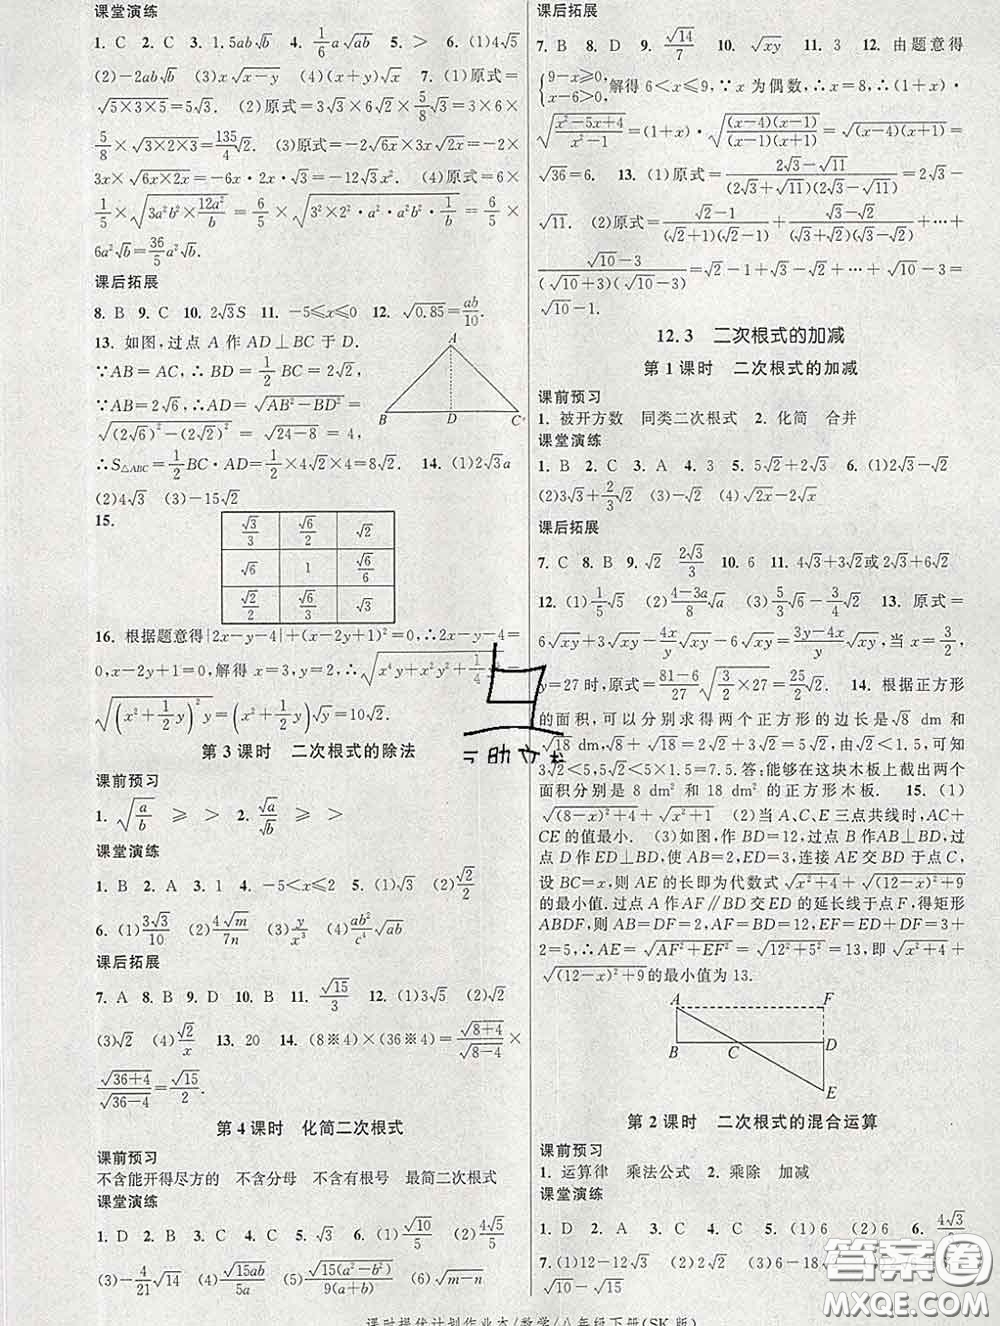 课堂演练
1. C  2. C  3. 1.5ab√b  4. 1/6 a√ab  5. >  6. (1)4√5
(2)-2ab√b  (3)x√(x-y)  (4)(x+y)√x  7. (1)原式=
√(5×3×5)=5√3. (2)原式=3√3×6√2×5/8√3=3×6×
5/8×√(3×2×3)=135/4√2. (3)原式=-2√6x×3x√2x=-2×
3x×√(6x×2x)=-6x·2x·√3=-12√3x². (4)原式=6×
1/5×√(3a²b²×12a²/b)=6/5×√(3²×2²·a²·a²b²·b)=6/5×
6a²√b=36/5a²√b.
课后拓展
8. B  9. C  10. 2√3S  11. -5≤x≤0  12. √0.85=ab/10.
13. 如图,过点 A 作 AD⊥BC 于 D.
∵AB=AC,∴BD=1/2BC=2√2.
∵AB=2√6,∴AD=√(AB²-BD²)=
√((2√6)²-(2√2)²)=√(24-8)=4.
A
B D C
∴S△ABC=1/2BC·AD=1/2×4√2×4=8√2. 14. (1)2√3a
(2)4√3  (3)-15√2
15.
√3/3  √6/2  √2
√6  1  √6/6
√2/2  √6/3  √3
16. 根据题意得|2x-y-4|+(x-2y+1)²=0,∴2x-y-4=
0,x-2y+1=0,解得 x=3,y=2,∴√(x⁴y+x²y²+1/4y³)=
√((x²+1/2y)²y)=(x²+1/2y)√y=10√2.
第 3 课时 二次根式的除法
课前预习
1. √(a/b)  ≥  >  2. √a/√b  ≥  >
课堂演练
1. B  2. A  3. B  4. -5<x≤2  5. (1)√2  (2)√2/2
6. (1)3√3/10  (2)4√m/7n  (3)y/x³  (4)ab²/c⁴√ab
课后拓展
7. A  8. B  9. D  10. B  11. √15/3  12. (1)3√5  (2)√2
(3)√2  (4)√2/x  13. 20  14. (8※4)×(36※4)=√(8+4)/√(8-4)×
√(36+4)/√(36-4)=√15/2.
第 4 课时 化简二次根式
课前预习
不含能开得尽方的 不含分母 不含有根号 最简二次根式
课堂演练
1. D  2. B  3. D  4. B  5. √3  6. (1)√10/5  (2)4√5/5
(3)-4/21√14  (4)√15ab/5a  (5)√(15(a²-b²))/5  (6)√(m-n)
课后拓展
7. B  8. D  9. √14/7  10. √xy  11. 3  12. 由题意得
{9-x≥0, x-6>0, 解得 6<x≤9,∵x 为偶数,∴x=8,∴(1+x)·
√((x²-5x+4)/(x²-1))=(1+x)·√((x-4)(x-1)/(x+1)(x-1))=√((x-4)(x+1))=
√36=6. 13. (1)原式=(2√3-√11)/((2√3+√11)(2√3-√11))=2√3-
√11. (2)原式=(√2-1)/((√2+1)(√2-1))+(√3-√2)/((√3+√2)(√3-√2))+…+
(√10-3)/((√10+3)(√10-3))=√2-1+√3-√2+…+√10-√9=
√10-1.
12.3 二次根式的加减
第 1 课时 二次根式的加减
课前预习
1. 被开方数 同类二次根式  2. 化简 合并
课堂演练
1. B  2. C  3. A  4. 3  5. 5√2+2√3  6. (1)2√3-√2
(2)3√3+2/3√2  (3)√2  (4)√2x-2√x
课后拓展
7. C  8. B  9. √2  2√3/3  10. 6  11. 4√3+3√2或2√3+6√2
12. (1)1/5√5  (2)(4-3a)/8√a  (3)5/2√6-3/4√2  13. 原式=
6√xy+3√xy-4x/y√xy-6√xy=(3y-4x)/y√xy,当 x=3/2,
y=27 时,原式=(81-6)/27√(3/2×27)=25/2√2. 14. 根据正方形
的面积,可以分别求得两个正方形的边长是√8 dm 和
√18 dm,√8+√18=2√2+3√2=5√2(dm). 由题意可知
3√2<5,5√2<5×1.5=7.5. 答:能够在这块木板上截出两个
面积分别是 8 dm² 和 18 dm² 的正方形木板. 15. (1)
√((8-x)²+4)+√(x²+1)  (2)当 A、C、E 三点共线时,AC+
CE 的值最小. (3)如图,作 BD=12,过点 B 作AB⊥BD,过
点 D 作 ED⊥BD,使 AB=2,ED=3,连接 AE 交 BD 于点 C,
设 BC=x,则 AE 的长即为代数式√(x²+4)+√((12-x)²+9)
的最小值. 过点 A 作 AF∥BD 交 ED 的延长线于点 F,得矩形
ABDF,则 AB=DF=2,AF=BD=12,EF=ED+DF=3+
2=5,∴AE=√(AF²+EF²)=√(12²+5²)=13,即√(x²+4)+
√((12-x)²+9)的最小值为 13.
A F
B C D
E
第 2 课时 二次根式的混合运算
课前预习
1. 运算律 乘法公式  2. 乘除 加减
课堂演练
1. D  2. A  3. C  4. C  5. (1)6  (2)6  6. (1)4√3/3
7. (1)12-12√3  (2)12-√6  (3)6-18√
√10-√15
答案圈
MXQE.COM
课时提优计划作业本/数学/八年级下册(SK 版)